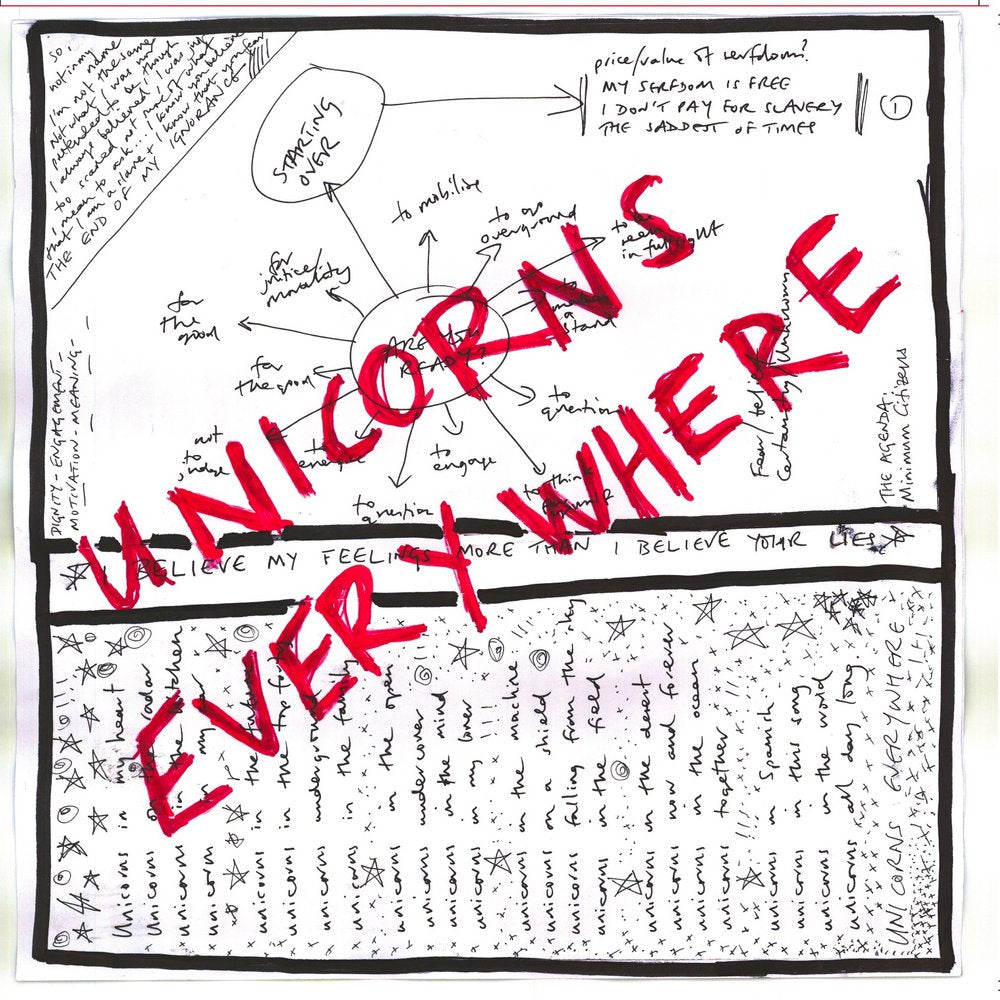 so,
not in my
name
I'm not the same
Not what I was
pretended to be, though
I always believed I was just
too scared, not sure, of what
I mean to ask... I know you believe
that I am a slave + I know that you fear
THE END OF MY IGNORANCE !!!!!
STARTING
OVER
price/value of serfdom?
MY SERFDOM IS FREE
I DON'T PAY FOR SLAVERY
THE SADDEST OF TIMES
1
to mobilise
to go
overground
to be
seen
in full sight
for
justice/
morality
for
the
good
ARE YOU
READY?
to
make
a
stand
for
the good
to
question
not
to
judge
to
to
engage
to
question
to think
Fear/belief
Certainty/Unknown
THE AGENDA:
Minimum Citizens
DIGNITY - ENGAGEMENT -
MOTIVATION - MEANING -
UNICORNS
EVERYWHERE
I BELIEVE MY FEELINGS MORE THAN I BELIEVE YOUR LIES
Unicorns in my heart
Unicorns on the radar
unicorns in the kitchen
unicorn in my ear
unicorns in the future
unicorns in the top forty
unicorns underground
unicorns in the family
unicorns in the open
unicorns undercover
unicorns in the mind
unicorns in my lover
unicorns in the machine
unicorns on a shield
unicorns falling from the sky
unicorns in the field
unicorns in the desert
unicorns now and forever
unicorns in the ocean
unicorns together
unicorns in Spanish
unicorns in this song
unicorns in the world
unicorns all day long
UNICORNS EVERYWHERE!